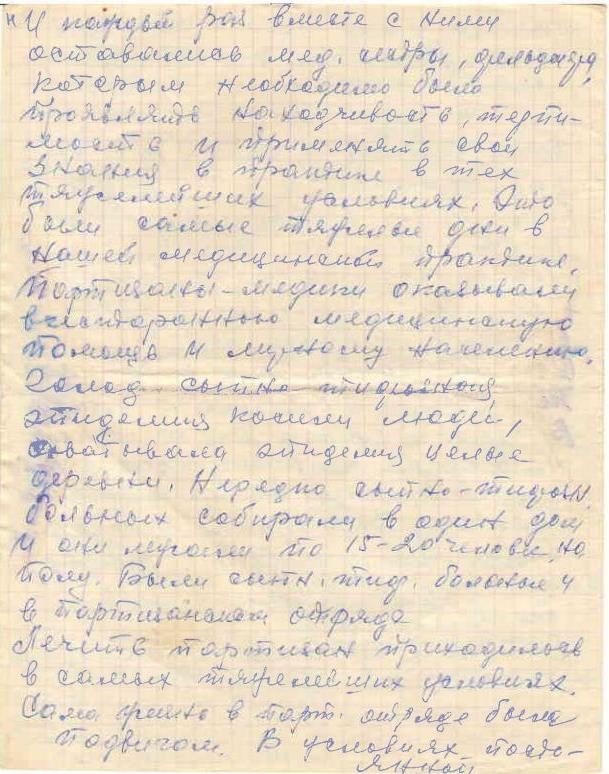 И каждый раз вместе с ними
оставались мед. сестры, фельдшера,
которым необходимо было
проявлять находчивость, терпи-
мость и применять свои
знания в практике в тех
тяжелейших условиях. Это
были самые тяжелые дни в
нашей медицинской практике.
Партизаны-медики оказывали
всестороннюю медицинскую
помощь и мирному населению.
Голод сыпно тифозная
эпидемия косили людей,
охватывала эпидемия целые
деревни. Нередко сыпно-тифозн.
больных собирали в один дом
и они лежали по 15-20 человек на
полу. Были сыпн. тиф. больные и
в партизанском отряде
Лечить партизан приходилось
в самых тяжелейших условиях.
Сама жизнь в парт. отряде была
подвигом. В условиях посто-
янной